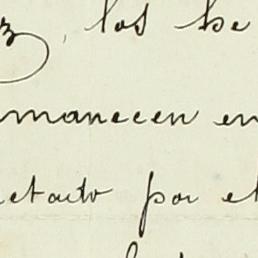 z, los be
manecen en
ctacto por el